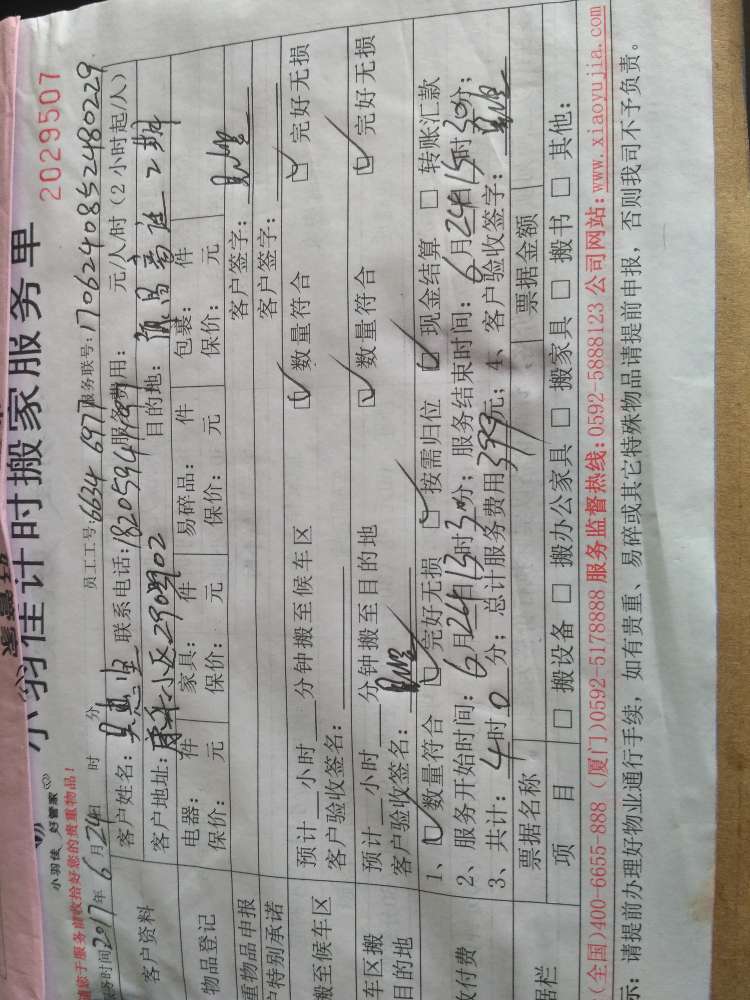 小羽佳计时搬家服务单 2029507
小羽佳 好管家
服务时间2017年6月24日 时 分 员工工号:6634 6977 服务联号:1706240852480229
客户资料 客户姓名: 联系电话: 服务费用: 元/人/时(2小时起/人)
客户地址: 小区 目的地: 2期
物品登记 电器: 件 家具: 件 易碎品: 件 包裹: 件
保价: 元 保价: 元 保价: 元 保价: 元
重物品申报 客户签字:
户特别承诺 客户签字:
搬至候车区 预计 小时 分钟搬至候车区 ☑ 数量符合 ☑ 完好无损
客户验收签名:
车区搬 目的地 预计 小时 分钟搬至目的地 ☑ 数量符合 ☑ 完好无损
客户验收签名:
收付费 1、☑ 数量符合 ☑ 完好无损 ☑ 按需归位 ☑ 现金结算 □ 转账汇款
2、服务开始时间: 6月24日13时30分; 服务结束时间: 6月24日15时30分;
3、共计: 4时0分; 总计服务费用399元; 4、客户验收签字:
票据名称 票据金额
项 目 □ 搬设备 □ 搬办公家具 □ 搬家具 □ 搬书 □ 其他:
(全国)400-6655-888 (厦门)0592-5178888 服务监督热线:0592-5888123 公司网站:www.xiaoyujia.com
示: 请提前办理好物业通行手续, 如有贵重、易碎或其它特殊物品请提前申报, 否则我司不予负责。